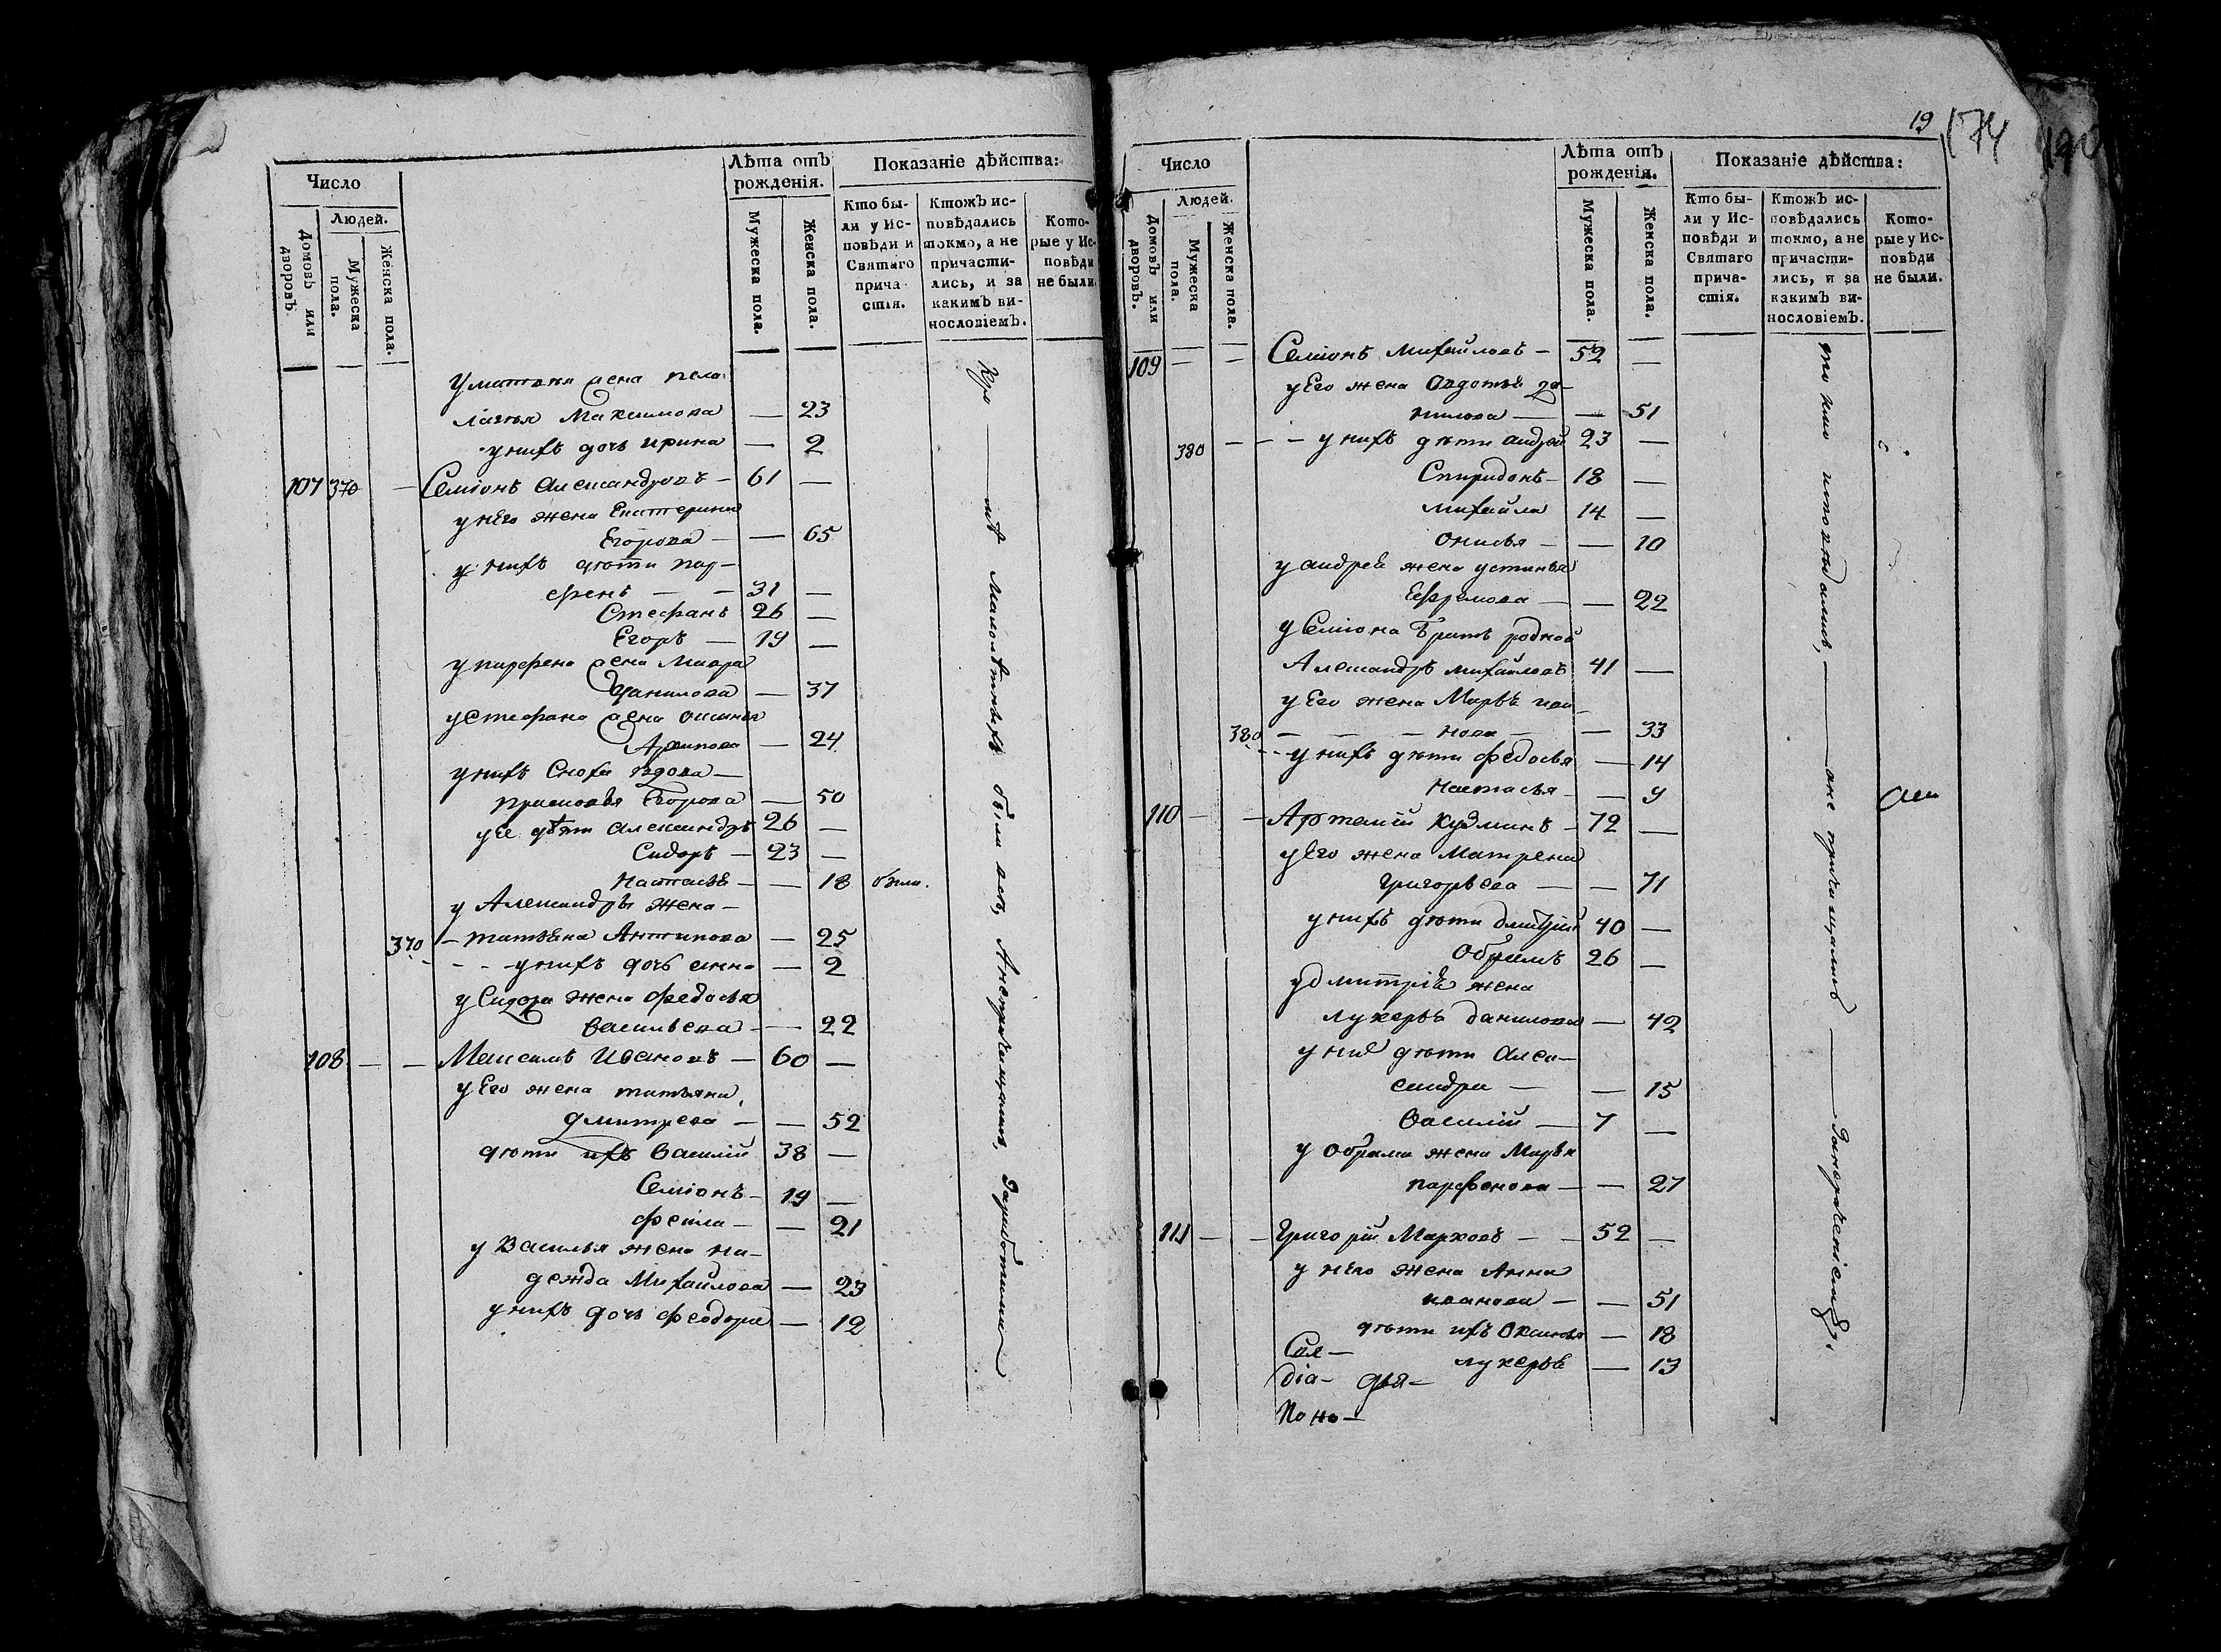 Число
Людей.
Домовъ или дворовъ.
Мужеска пола.
Женска пола.
Лѣта отъ рожденія.
Мужеска пола.
Женска пола.
Показаніе дѣйства:
Кто бы-
ли у Ис-
повѣди и
Святаго
прича-
стія.
Ктожъ ис-
повѣдались
токмо, а не
причасти-
лись, и за
какимъ ви-
нословіемъ.
Кото-
рые у Ис-
повѣди
не были.
жена пела
гіягья Максимова — 23
у нихъ дочь ирина — 2
107 370 — Семіонъ Александровъ — 61 —
у него жена Екатерина
Егорова — — 65
у нихъ дѣти пар-
фенъ — — 31 —
Стефанъ 26 —
Егоръ — 19 —
у парфена жена Мавра
Данилова — 37
у Стефана жена
Архипова — 24
у нихъ Сноха вдова —
прасковья Егорова — 50
у ее дѣти александръ 26 —
Сидоръ — 23 —
Настасья — — 18 были.
у Александра жена —
370 — татьяна Антипова — 25
у нихъ дочь анна — 2
у Сидора жена федосья
васильева — — 22
108 — — Максимъ Ивановъ — 60 —
у Его жена татьяна
дмитрева — — 52
дѣти ихъ василій 38 —
Семіонъ — 19 —
фекла — — 21
у Василья жена на-
дежда Михайлова — 23
у нихъ дочь феодора — 12
малолѣтныхъ были
19
174
Число
Людей.
Домовъ или дворовъ.
Мужеска пола.
Женска пола.
Лѣта отъ рожденія.
Мужеска пола.
Женска пола.
Показаніе дѣйства:
Кто бы-
ли у Ис-
повѣди и
Святаго
прича-
стія.
Ктожъ ис-
повѣдались
токмо, а не
причасти-
лись, и за
какимъ ви-
нословіемъ.
Кото-
рые у Ис-
повѣди
не были.
109 — — Семіонъ Михайловъ — 52 —
у Его жена Авдотья да-
нилова — — 51
380 — — — у нихъ дѣти андрей 23 —
Спиридонъ — 18 —
михайла 14 —
онисья — — 10
у андрея жена устинья
Ефремова — — 22
у Семіона братъ родной
Александръ михайловъ 41 —
у Его жена Марья ива-
380 — — — нова — — 33
— — у нихъ дѣти федосья — 14
Настасья — — 9
110 — — Артемій Кузминъ — 72 —
у Его жена Матрена
григорьева — — 71
у нихъ дѣти дмитрій 40 —
Обрамъ 26 —
у дмитрія жена
лукерья данилова — 42
дѣти алек-
сандра — — 15
Василій — 7 —
у обрама жена Марья
парфенова — — 27
111 — — Григорій Марковъ — — 52 —
у него жена Анна
иванова — — 51
дѣти ихъ — 18
лукерья — 13
діа- дья-
поно-